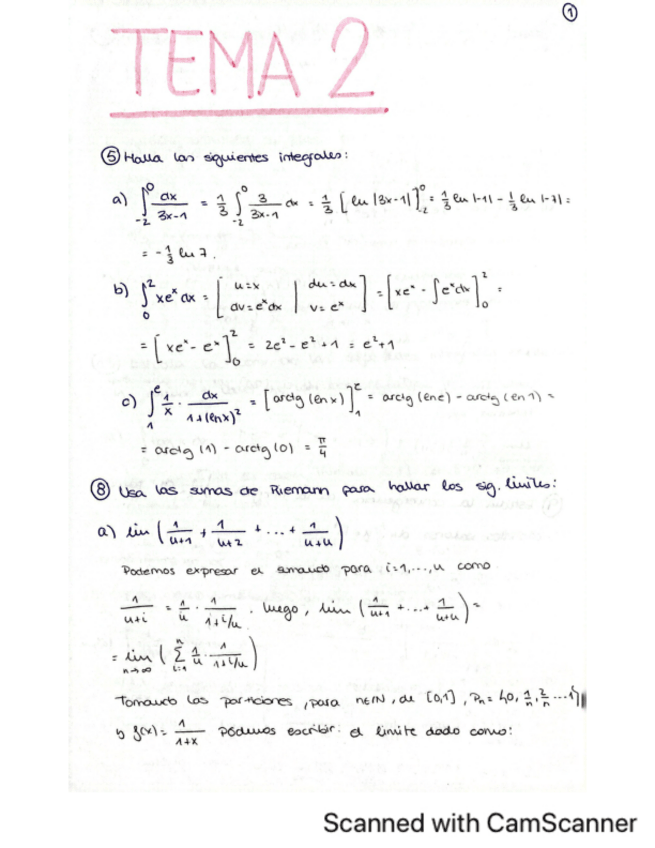 1
TEMA 2
5 Halla las siguientes integrales:
a) ∫₋₂⁰ dx/(3x-1) = 1/3 ∫₋₂⁰ 3/(3x-1) dx = 1/3 [ln |3x-1|]₋₂⁰ = 1/3 ln |-1| - 1/3 ln |-7| =
= -1/3 ln 7.
b) ∫₀² xeˣ dx = [u=x | du=dx dv=eˣdx | v=eˣ] = [xeˣ - ∫eˣdx]₀² =
= [xeˣ - eˣ]₀² = 2e² - e² + 1 = e²+1
c) ∫₁ᵉ 1/x · dx/(1+(lnx)²) = [arctg (lnx)]₁ᵉ = arctg (lne) - arctg (ln1) =
= arctg (1) - arctg (0) = π/4
8 Usa las sumas de Riemann para hallar los sig. limites:
a) lim (1/(n+1) + 1/(n+2) + ... + 1/(n+n))
Podemos expresar el sumando para i=1,...,n como
1/(n+i) = 1/n · 1/(1+i/n). Luego, lim (1/(n+1) + ... + 1/(n+n)) =
= lim n→∞ (∑ᵢ₌₁ⁿ 1/n · 1/(1+i/n))
Tomando las particiones, para n∈ℕ, de [0,1], Pn = {0, 1/n, 2/n ... 1}
y f(x) = 1/(1+x) podemos escribir el limite dado como:
Scanned with CamScanner